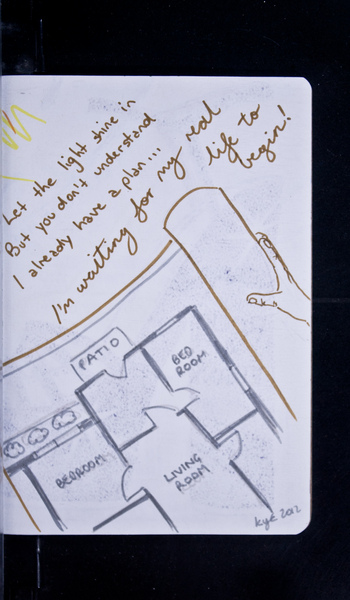 Let the light shine in
But you don't understand
I already have a plan...
I'm waiting for my real
life to
begin!
PATIO
BED
ROOM
BEDROOM
LIVING
ROOM
kye 2012